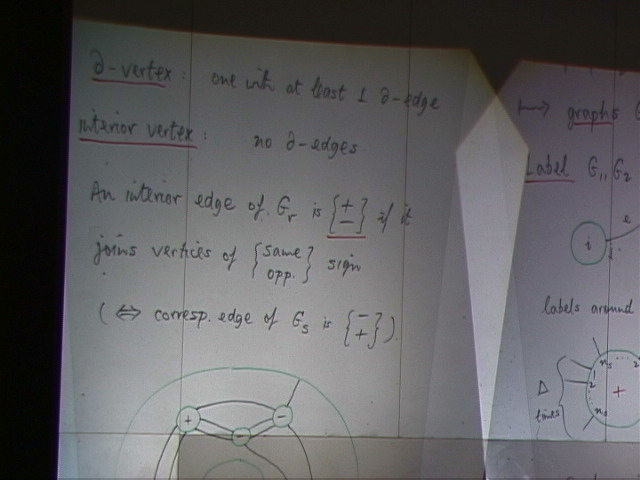 ∂-vertex: one with at least 1 ∂-edge
interior vertex: no ∂-edges
An interior edge of G_r is {+ −} if it
joins vertices of {same opp.} sign
(⇔ corresp. edge of G_s is {− +})
+ − −
↦ graphs G
Label G_1, G_2
e
i
labels around
Δ
times
n_s 1 2 n_s 2
+